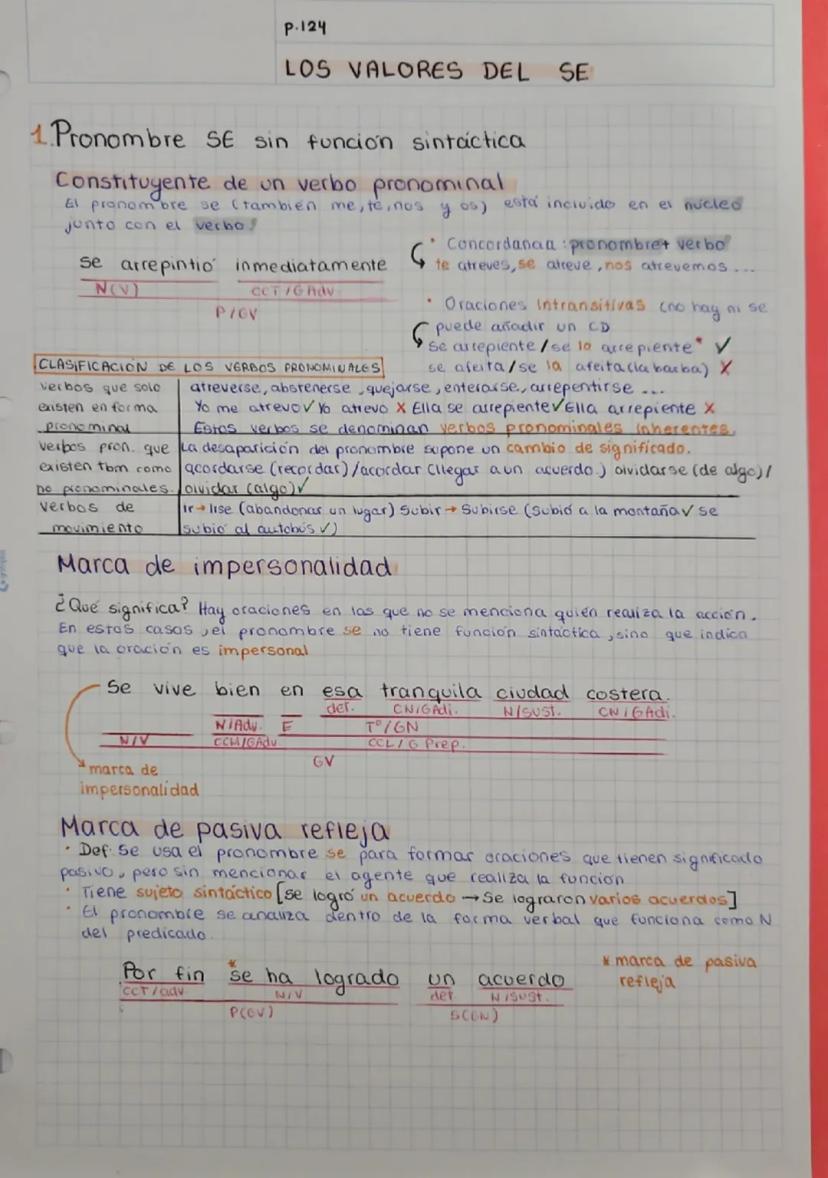 p.124
LOS VALORES DEL SE
1. Pronombre SE sin función sintáctica
Constituyente de un verbo pronominal
El pronombre se (también me, te, nos y os) está incluido en el núcleo
junto con el verbo.
• Concordancia: pronombre + verbo
te atreves, se atreve, nos atrevemos...
se arrepintió inmediatamente
N(V) CCT/GAdv
P/GV
• Oraciones intransitivas (no hay ni se
puede añadir un CD
se arrepiente/se lo arrepiente* ✓
se afeita/se la afeita (la barba) X
CLASIFICACIÓN DE LOS VERBOS PRONOMINALES
verbos que solo
existen en forma
pronominal
atreverse, abstenerse, quejarse, enterarse, arrepentirse ...
Yo me atrevo ✓ Yo atrevo X Ella se arrepiente ✓ Ella arrepiente X
Estos verbos se denominan verbos pronominales inherentes.
verbos pron. que
existen tbm como
no pronominales.
La desaparición del pronombre supone un cambio de significado.
acordarse (recordar)/acordar (llegar a un acuerdo.) olvidarse (de algo)/
olvidar (algo) ✓
verbos de
movimiento
Ir → Irse (abandonar un lugar) Subir → Subirse (Subió a la montaña ✓ se
subió al autobús ✓)
Marca de impersonalidad
¿Qué significa? Hay oraciones en las que no se menciona quién realiza la acción.
En estos casos, el pronombre se no tiene función sintáctica, sino que indica
que la oración es impersonal
Se vive bien en esa tranquila ciudad costera.
det. CN/GAdj. N/sust. CN/GAdj.
N/Adv. E Tº/GN
N/V CCM/GAdv CCL/G Prep.
GV
marca de
impersonalidad
Marca de pasiva refleja
• Def: Se usa el pronombre se para formar oraciones que tienen significado
pasivo, pero sin mencionar el agente que realiza la función
• Tiene sujeto sintáctico [se logró un acuerdo → Se lograron varios acuerdos]
• El pronombre se analiza dentro de la forma verbal que funciona como N
del predicado.
* marca de pasiva
refleja
Por fin *se ha logrado un acuerdo
CCT/adv N/V det N/sust.
P(GV) S(GN)